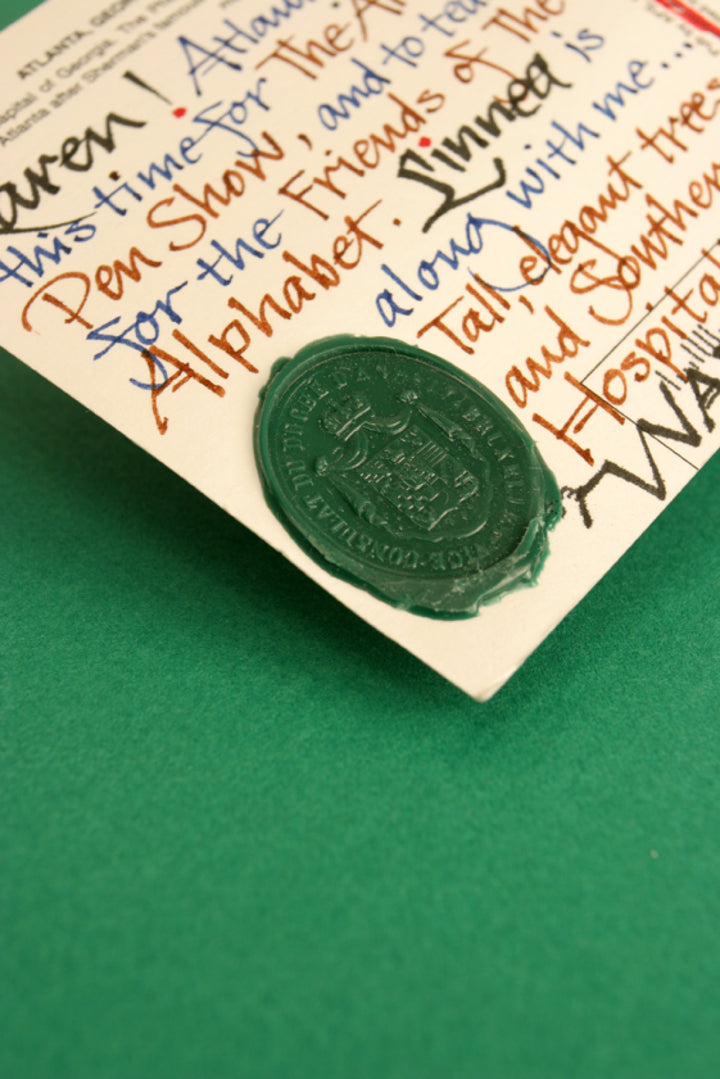 ATLANTA, GEOR
apital of Georgia. The Ph
Atlanta after Sherman's famou
aren! Atlan
this time for The A
Pen Show, and to tea
for the Friends of The
Alphabet. Linnea is
along with me...
Tall, elegant trees
and Southern
Hospital
WA
VICE-CONSULAT DU DUCHÉ D'AN